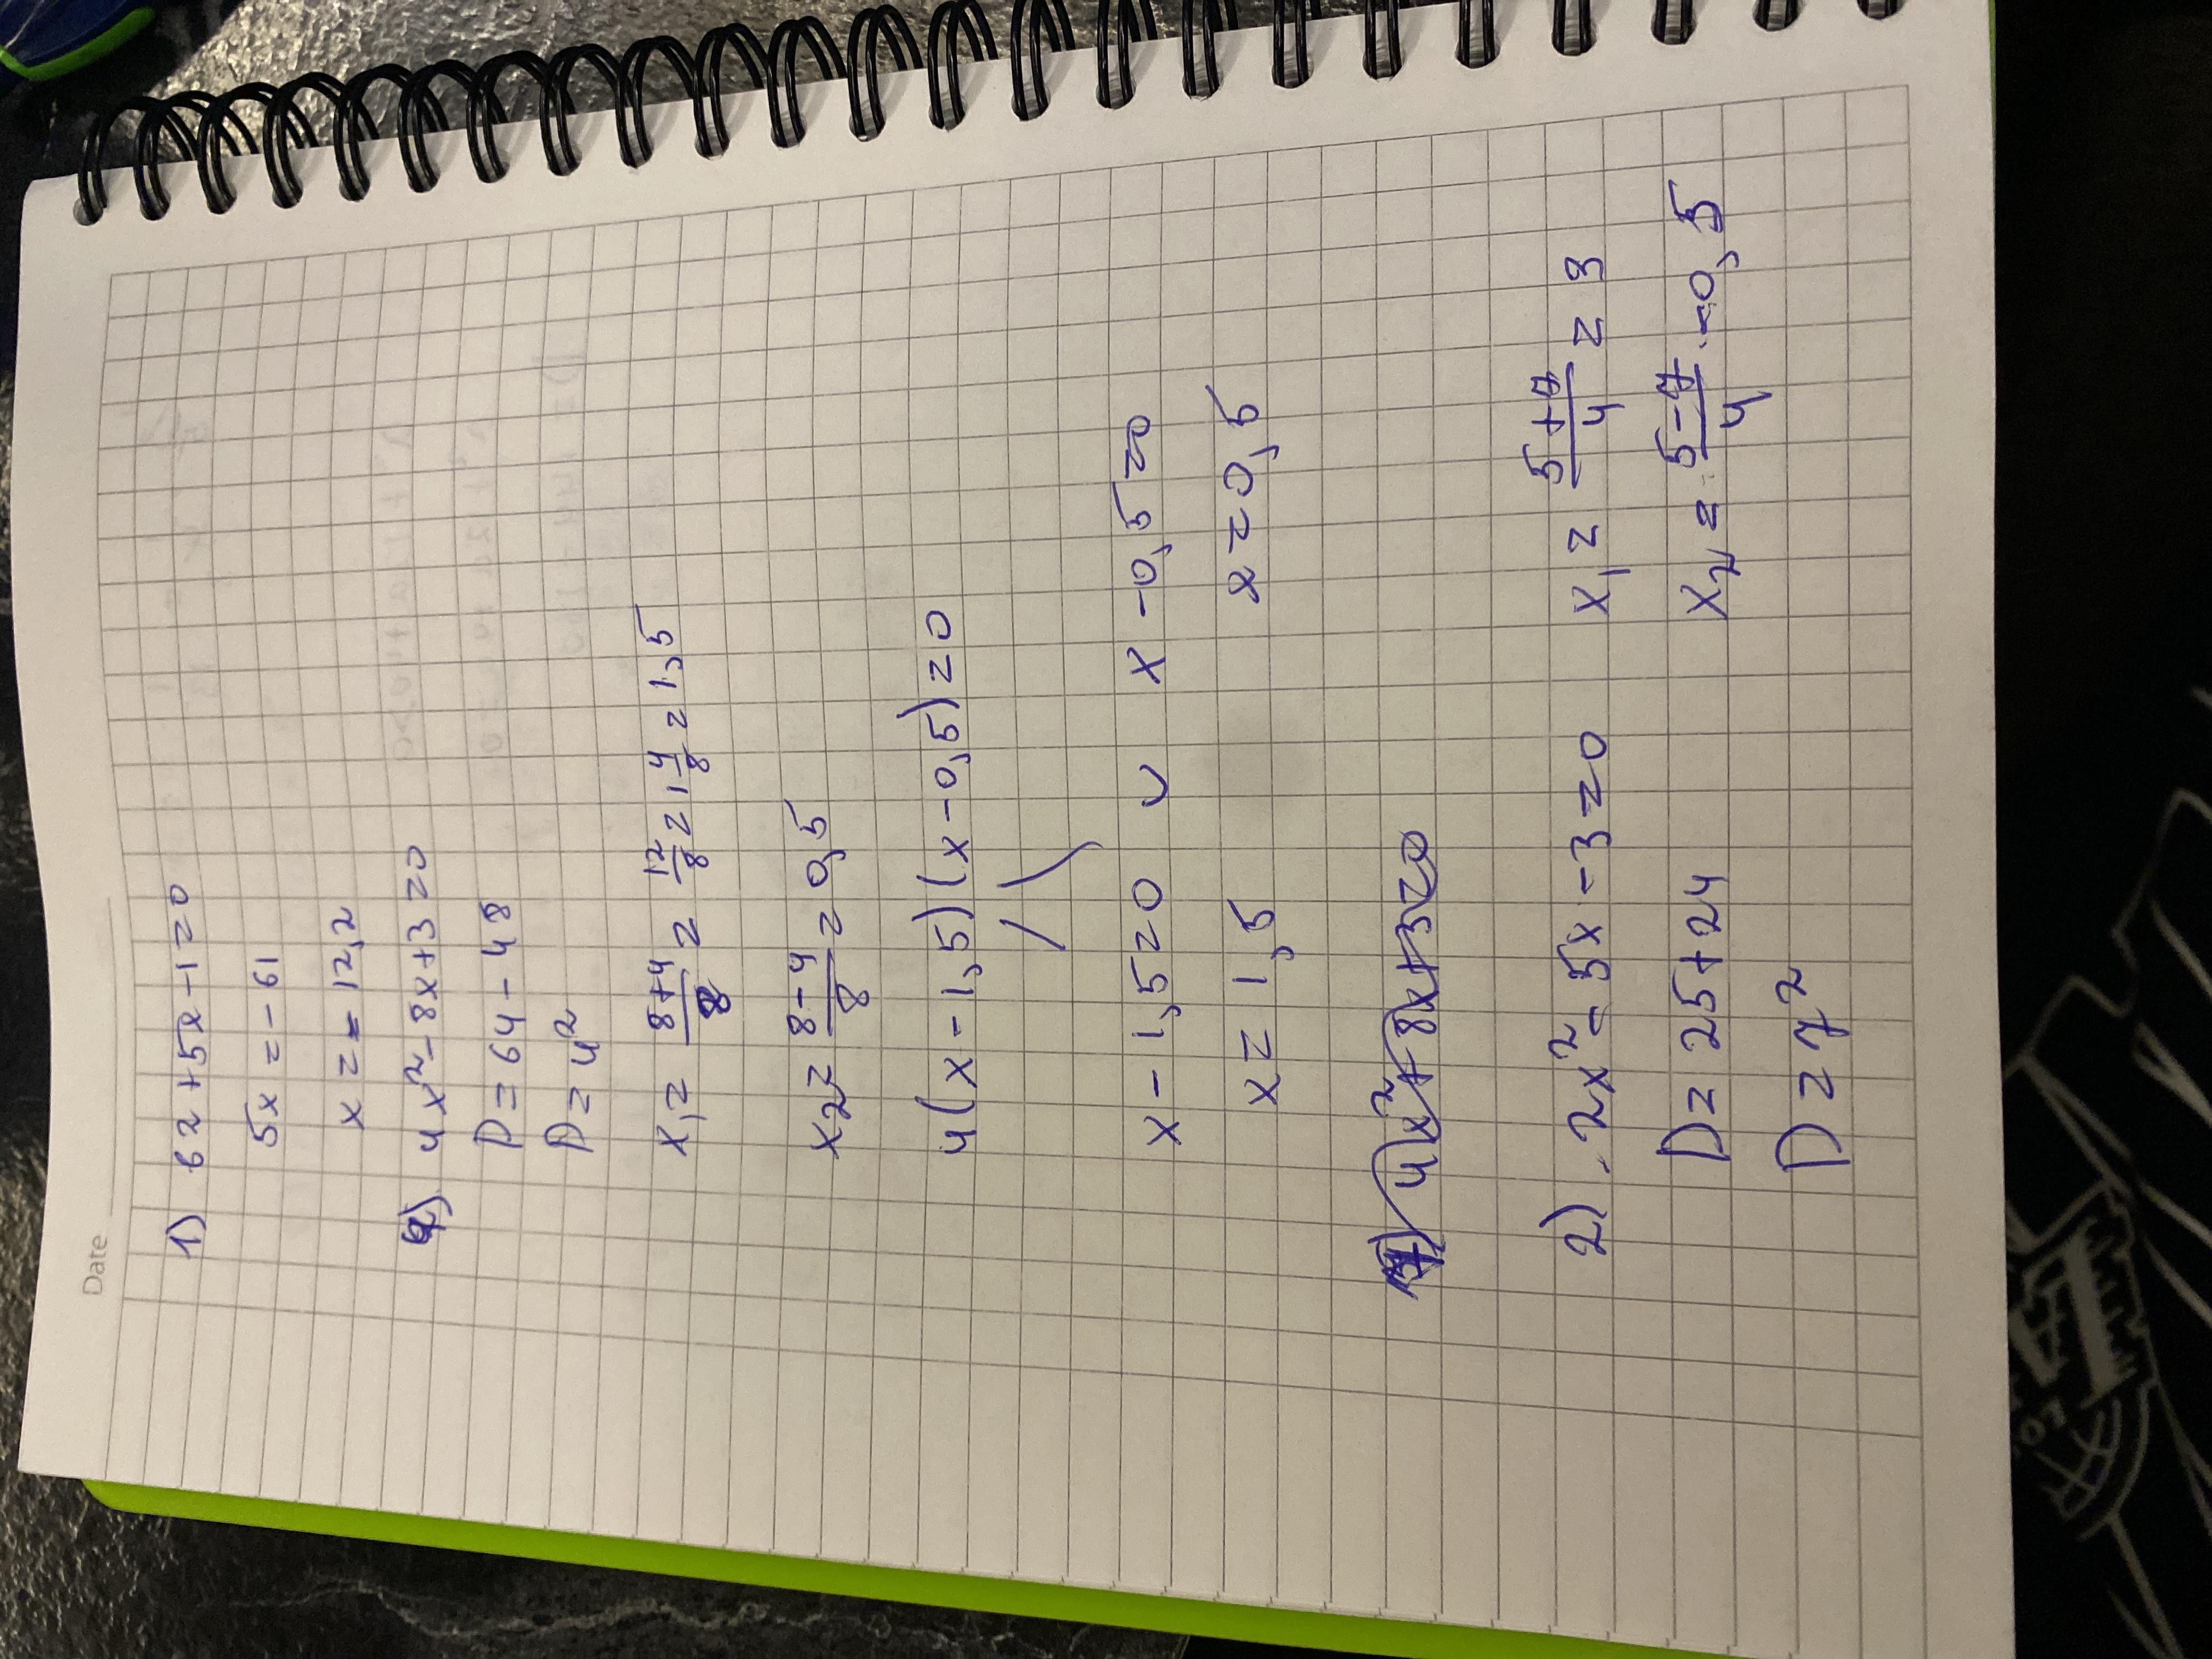 Date
1) 62+5x-1=0
5x=-61
x=-12,2
4x²-8x+3=0
D=64-48
D=4²
x₁=(8+4)/8=12/8=1 4/8=1,5
x₂=(8-4)/8=0,5
4(x-1,5)(x-0,5)=0
x-1,5=0 ∪ x-0,5=0
x=1,5 x=0,5
4x²+8x+3=0
2) 2x²-5x-3=0 x₁=(5+7)/4=3
D=25+24 x₂=(5-7)/4=-0,5
D=7²